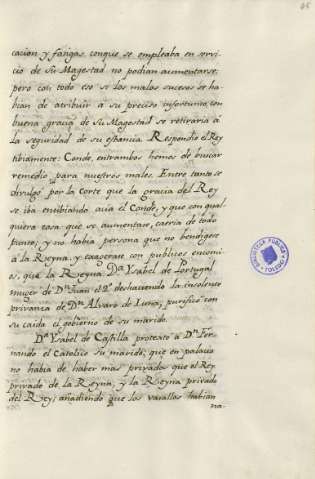 cacion y fatigas conque se empleaba en servi-
cio de su Magestad no podian aumentarse;
pero con todo eso si los malos sucesos se ha-
bian de atribuir á su preciso infortunio, con
buena gracia de su Magestad se retiraria á
la seguridad de su estancia. Respondio el Rey
tibiamente: Conde, entrambos hemos de buscar
remedio para nuestros males. Entre tanto se
divulgo por la Corte que la gracia del Rey
se iba entibiando acia el Conde, y que con qual-
quiera cosa que se aumentase, caeria de todo
punto; y no habia persona que no bendigese
á la Reyna, y exagerase con publicos encomi-
os, que la Reyna Dª Ysabel de Portugal
muger de Dn Juan el 2º deshaciendo la insolente
privanza de Dn Alvaro de Luna, purificó con
su caida el gobierno de su marido.
Dª Ysabel de Castilla protexto á Dn Fer-
nando el Catolico su marido, que en palacio
no habia de haber mas privado que el Rey
privado de la Reyna, y la Reyna privada
del Rey; añadiendo que los vasallos habian
BIBLIOTECA PUBLICA
TOLEDO